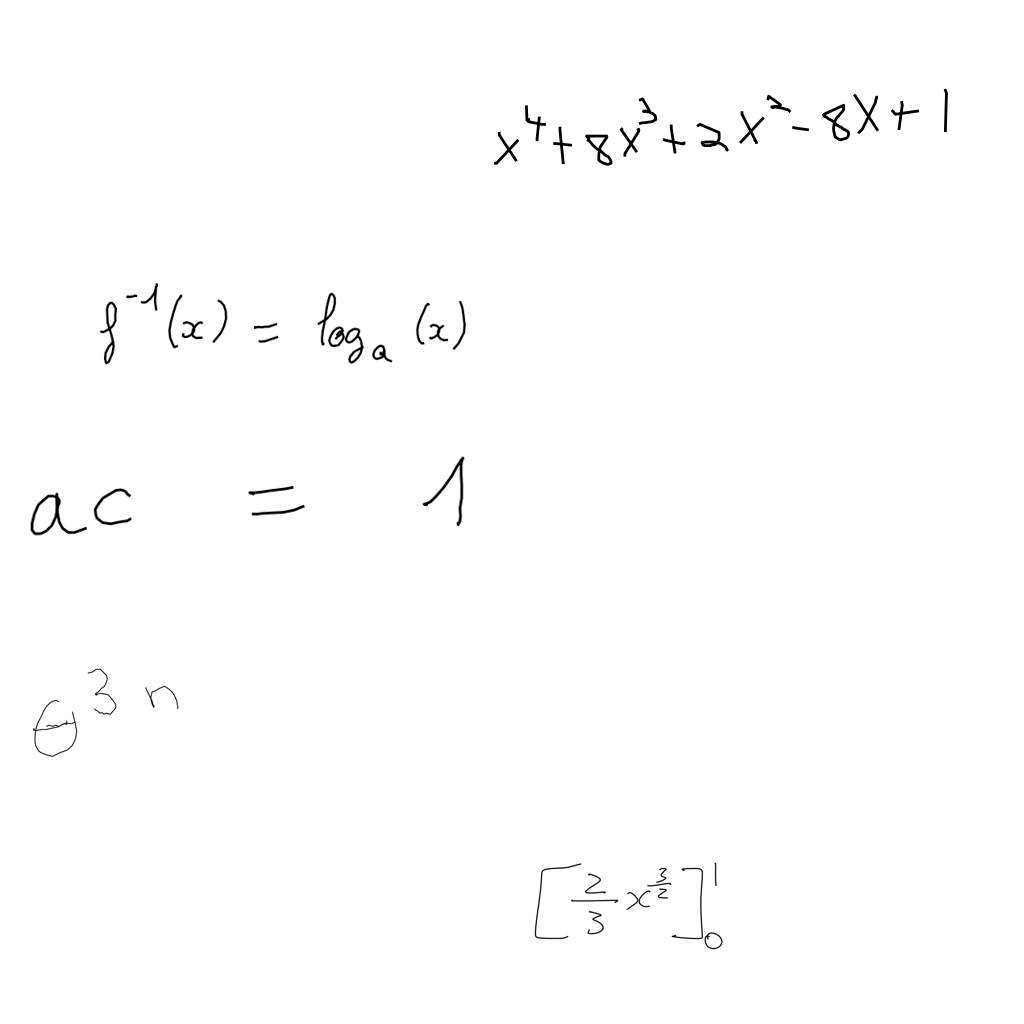 x^4 + 8x^3 + 2x^2 - 8x + 1
f^{-1}(x) = log_a (x)
ac = 1
θ^{3n}
[\frac{2}{3} x^{\frac{3}{2}}]_0^1